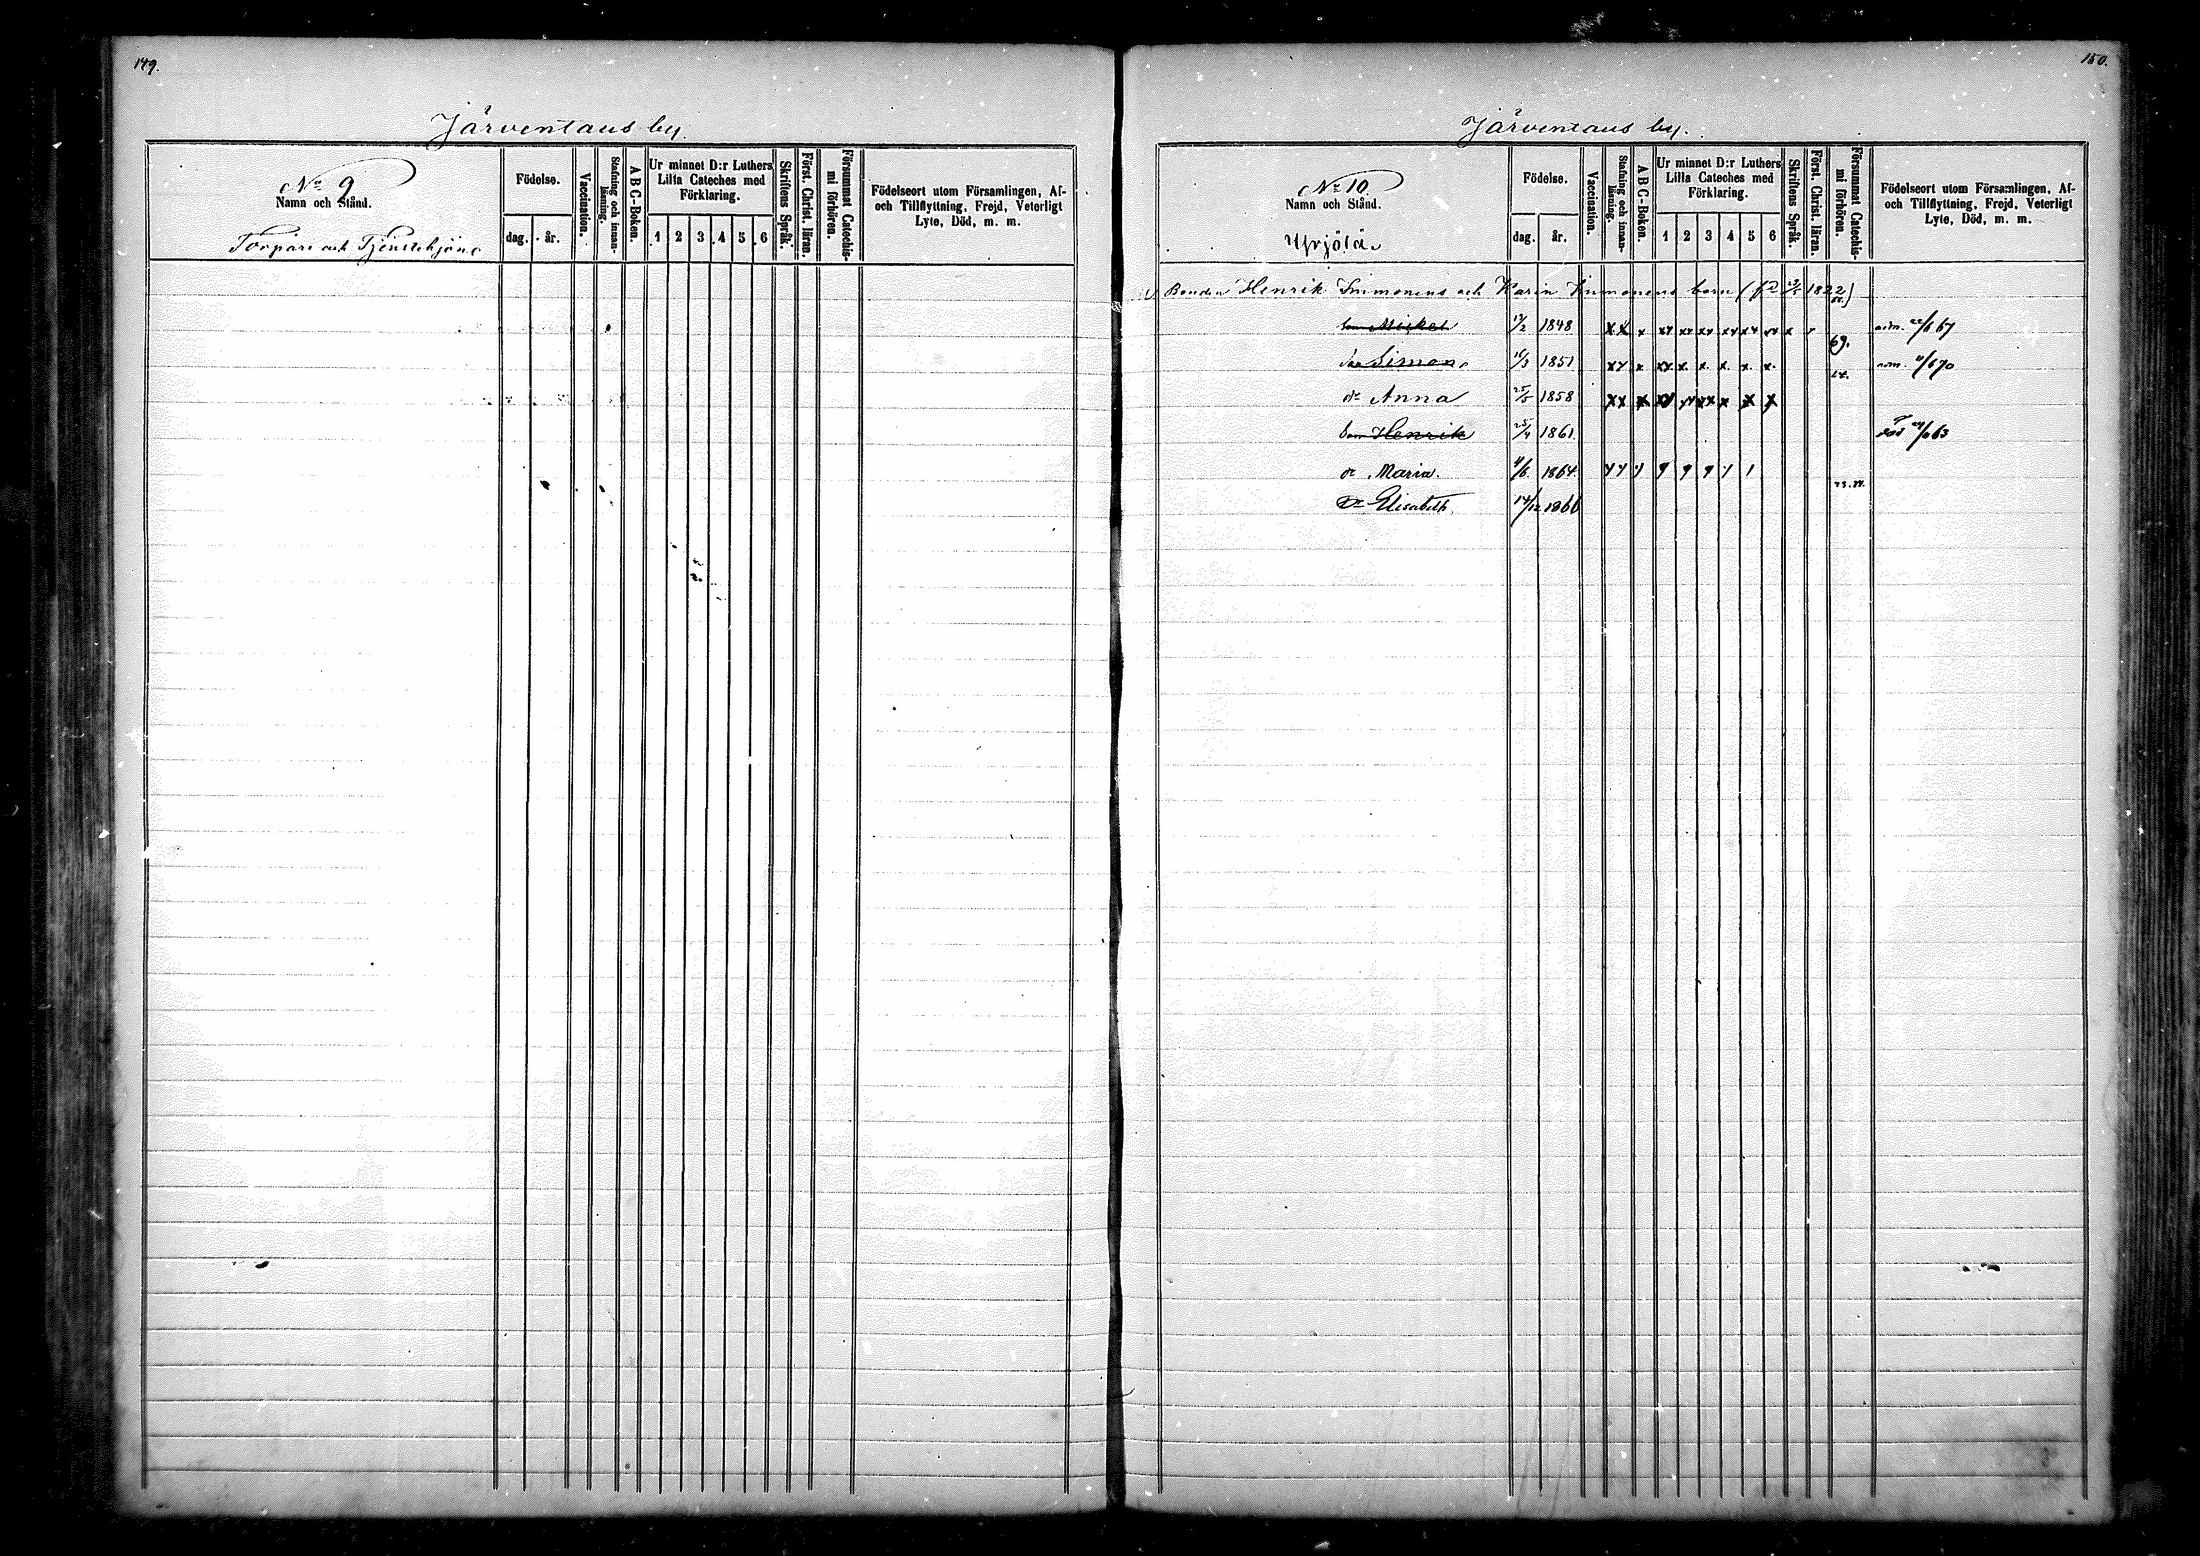 149.
Järventaus by.
No 9
Namn och Stånd.
Torpare och Tjenstehjon
Födelse.
dag. år.
Vaccination.
Stafning och innanläsning.
A B C-Boken.
Ur minnet D:r Luthers Lilla Cateches med Förklaring.
1 2 3 4 5 6
Skriftens Språk.
Först. Christ. läran.
Försummat Catechismi förhören.
Födelseort utom Församlingen, Af- och Tillflyttning, Frejd, Veterligt Lyte, Död, m. m.
150.
Järventaus by.
No 10
Namn och Stånd.
Yrjölä
Födelse.
dag. år.
Vaccination.
Stafning och innanläsning.
A B C-Boken.
Ur minnet D:r Luthers Lilla Cateches med Förklaring.
1 2 3 4 5 6
Skriftens Språk.
Först. Christ. läran.
Försummat Catechismi förhören.
Födelseort utom Församlingen, Af- och Tillflyttning, Frejd, Veterligt Lyte, Död, m. m.
Bonden Henrik Immonens och Karin Immonens barn 1822
Son Mickel 1848 69. adm. 67
Simon 1851 adm. 70
Dr Anna 25/5 1858
Son Henrik 25/4 1861. död 63
Dr Maria. 1864.
Dr Elisabeth. 14/12 1866